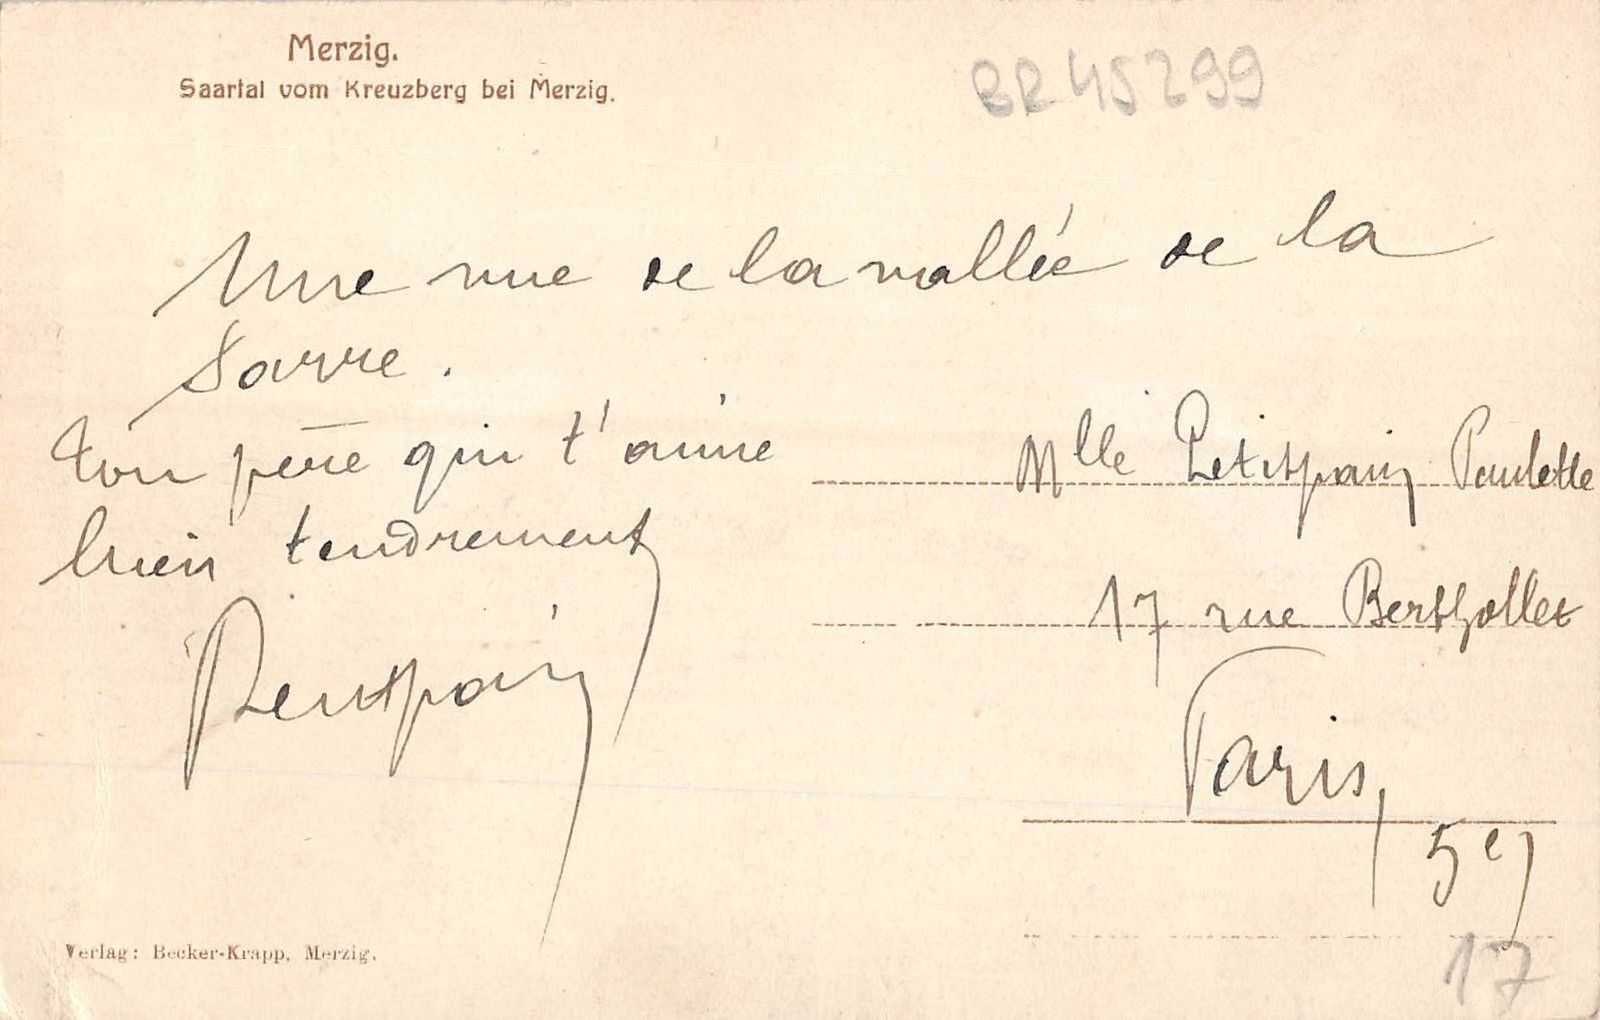 Merzig.
Saartal vom Kreuzberg bei Merzig.
BR 45299
Une vue de la vallée de la
Sarre.
Ton père qui t'aime
bien tendrement
Petitpain
Mlle Petitpain Paulette
17 rue Berthollet
Paris
5e
17
Verlag: Becker-Krapp, Merzig.